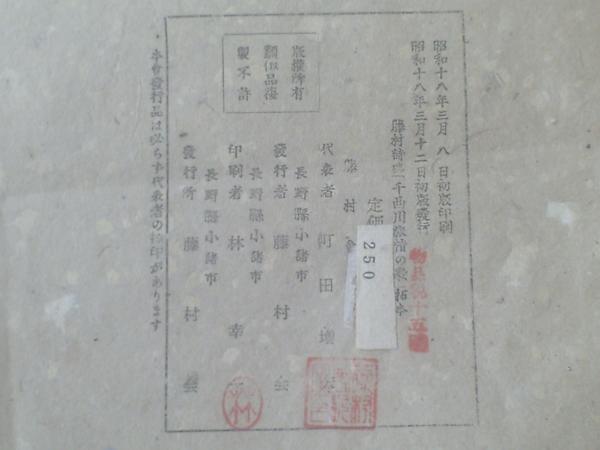 昭和十八年三月八日初版印刷
昭和十八年三月十二日初版發行
藤村詩碑 千曲川旅情の歌 拓本
定価
250
藤村會
代表者 町田
長野縣小諸市
發行者 藤村会
長野縣小諸市
印刷者 林幸
長野縣小諸市
發行所 藤村会
版權所有
類似品複
製不許
本會發行品は必らず代表者の検印があります